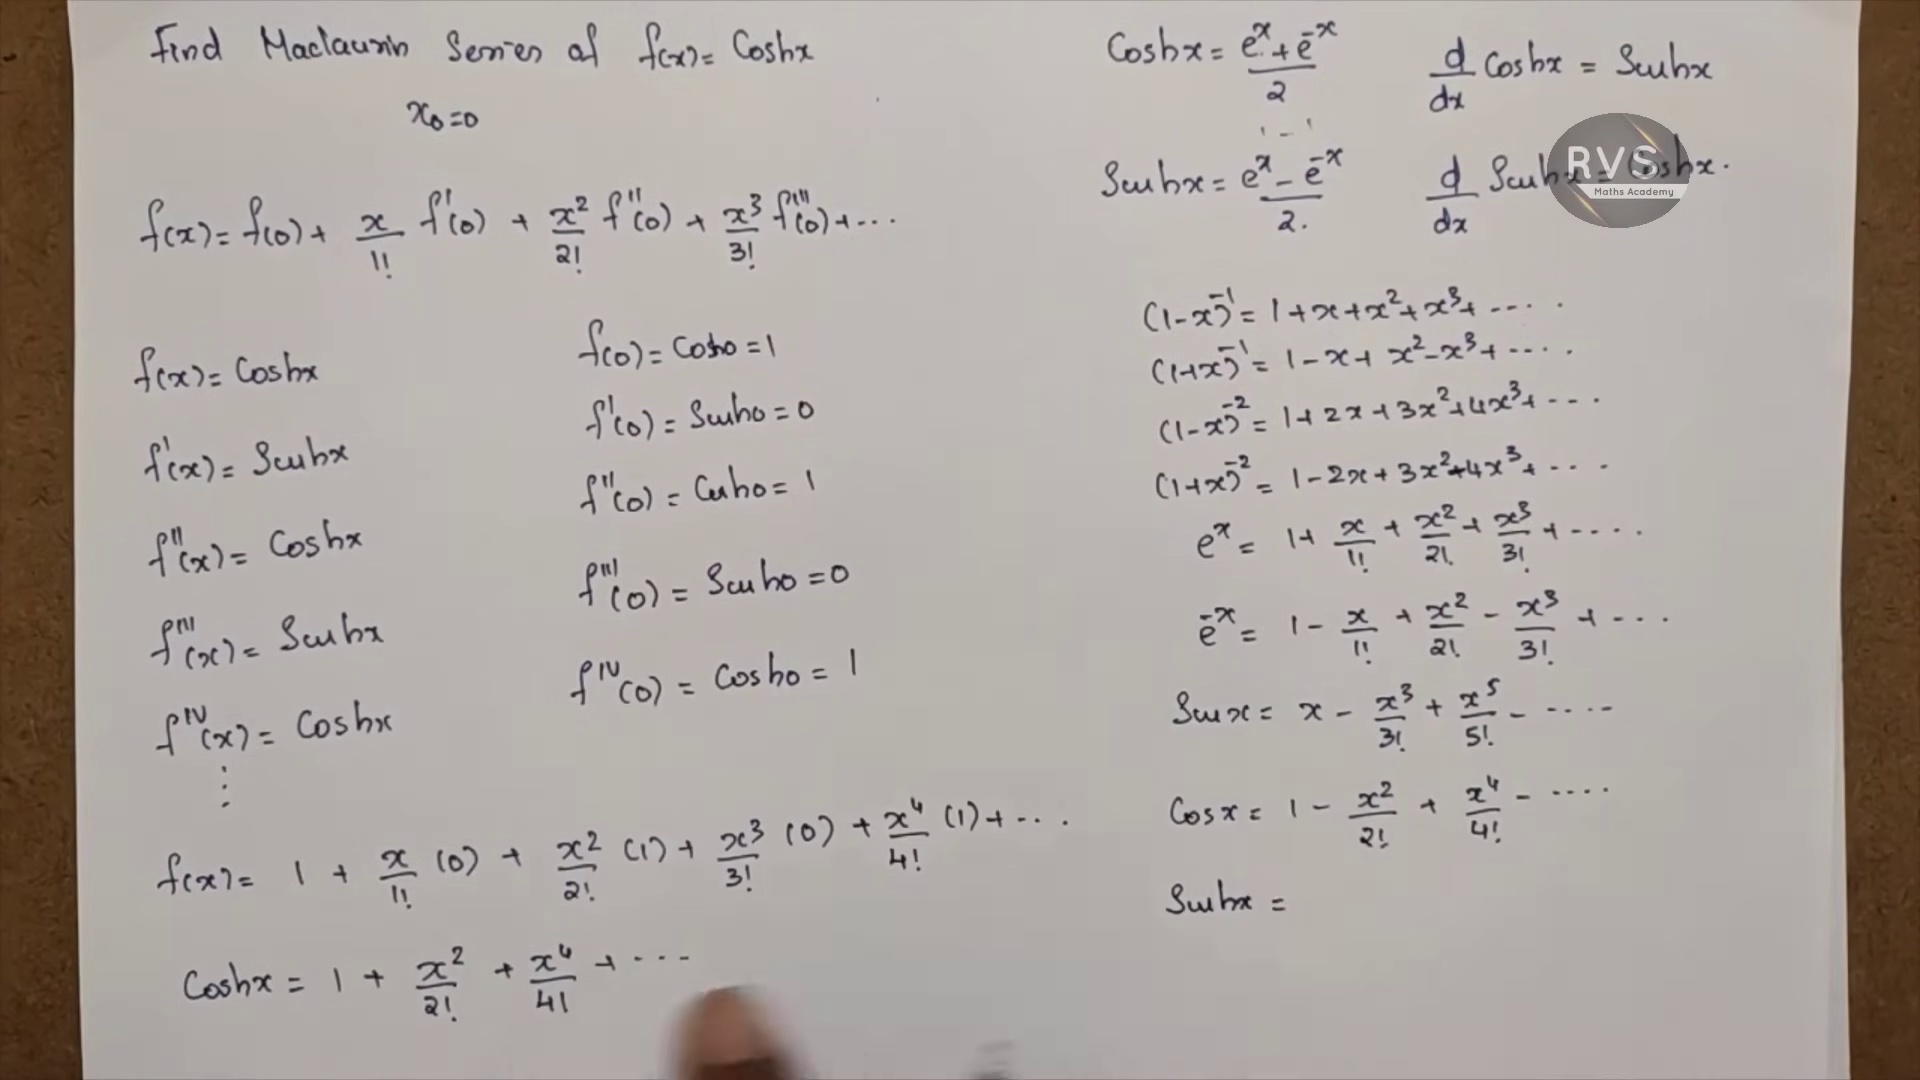 Find Maclaurin Series of f(x) = Coshx
x₀=0
f(x) = f(0) + x/1! f'(0) + x²/2! f''(0) + x³/3! f'''(0) + ...
f(x) = Coshx
f(0) = Cosh0 = 1
f'(x) = Sinhx
f'(0) = Sinh0 = 0
f''(x) = Coshx
f''(0) = Cosh0 = 1
f'''(x) = Sinhx
f'''(0) = Sinh0 = 0
f^IV(x) = Coshx
f^IV(0) = Cosh0 = 1
⋮
f(x) = 1 + x/1! (0) + x²/2! (1) + x³/3! (0) + x⁴/4! (1) + ...
Coshx = 1 + x²/2! + x⁴/4! + ...
Coshx = (e^x + e^-x)/2
d/dx Coshx = Sinhx
Sinhx = (e^x - e^-x)/2.
d/dx Sinhx = Coshx.
RVS
Maths Academy
(1-x)^-1 = 1 + x + x² + x³ + ....
(1+x)^-1 = 1 - x + x² - x³ + ....
(1-x)^-2 = 1 + 2x + 3x² + 4x³ + ...
(1+x)^-2 = 1 - 2x + 3x² - 4x³ + ...
e^x = 1 + x/1! + x²/2! + x³/3! + ....
e^-x = 1 - x/1! + x²/2! - x³/3! + ...
Sinx = x - x³/3! + x⁵/5! - ....
Cosx = 1 - x²/2! + x⁴/4! - ....
Sinhx =